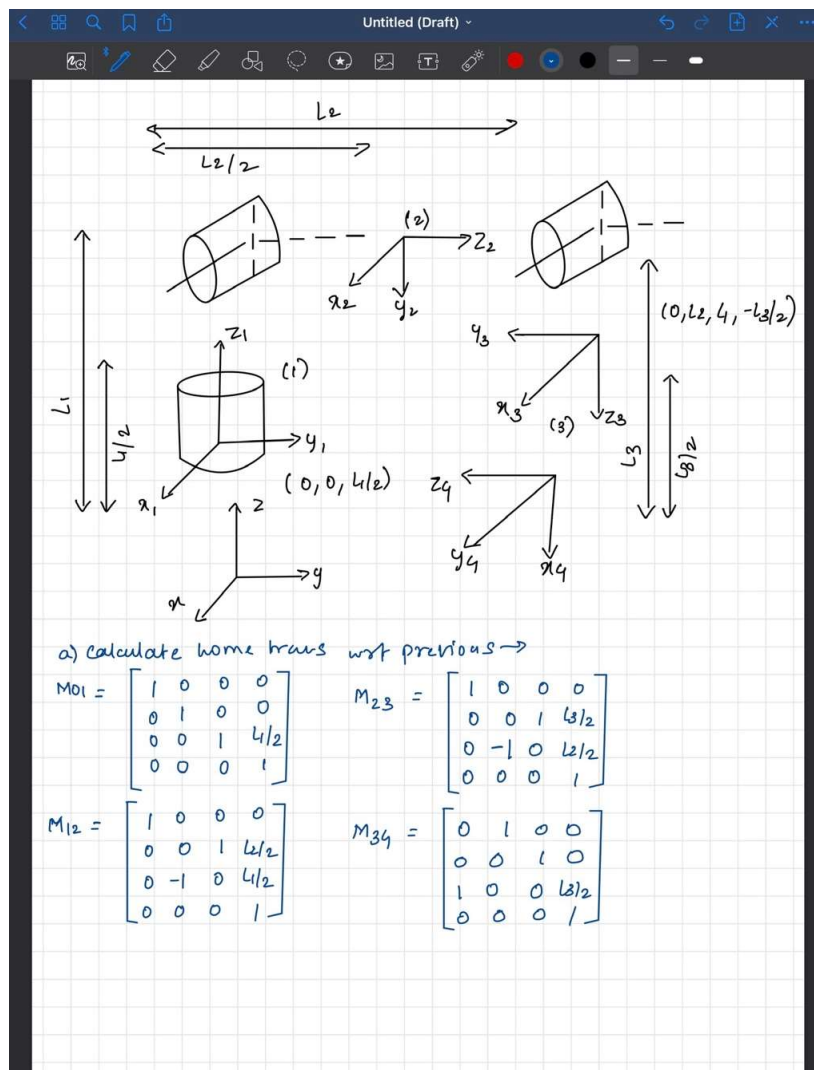 Untitled (Draft)
L2
L2/2
(2)
Z2
x2
y2
L1
L1/2
Z1
(1)
y1
x1
(0, 0, L1/2)
(0, L2, L1, -L3/2)
y3
x3
(3)
Z3
L3
L3/2
Z
y
x
Z4
y4
x4
a) Calculate home trans wrt previous →
M01 =
1 0 0 0
0 1 0 0
0 0 1 L1/2
0 0 0 1
M23 =
1 0 0 0
0 0 1 L3/2
0 -1 0 L2/2
0 0 0 1
M12 =
1 0 0 0
0 0 1 L2/2
0 -1 0 L1/2
0 0 0 1
M34 =
0 1 0 0
0 0 1 0
1 0 0 L3/2
0 0 0 1